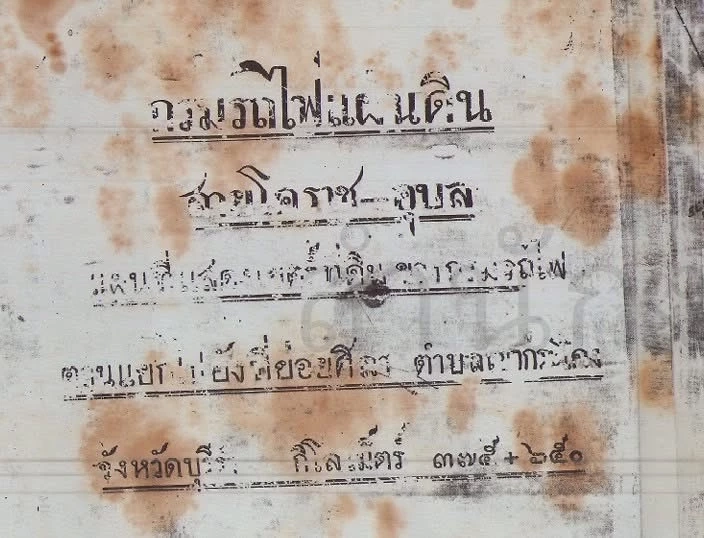 กรมรถไฟแผ่นดิน
สายโคราช - อุบล
แผนที่แสดงเขตร์ที่ดินของกรมรถไฟ
ตอนแยกไปยังที่ย่อยศิลา ตำบลเขากระโดง
จังหวัดบุรีรัมย์ กิโลเม็ตร์ ๓๗๕ + ๖๕๐